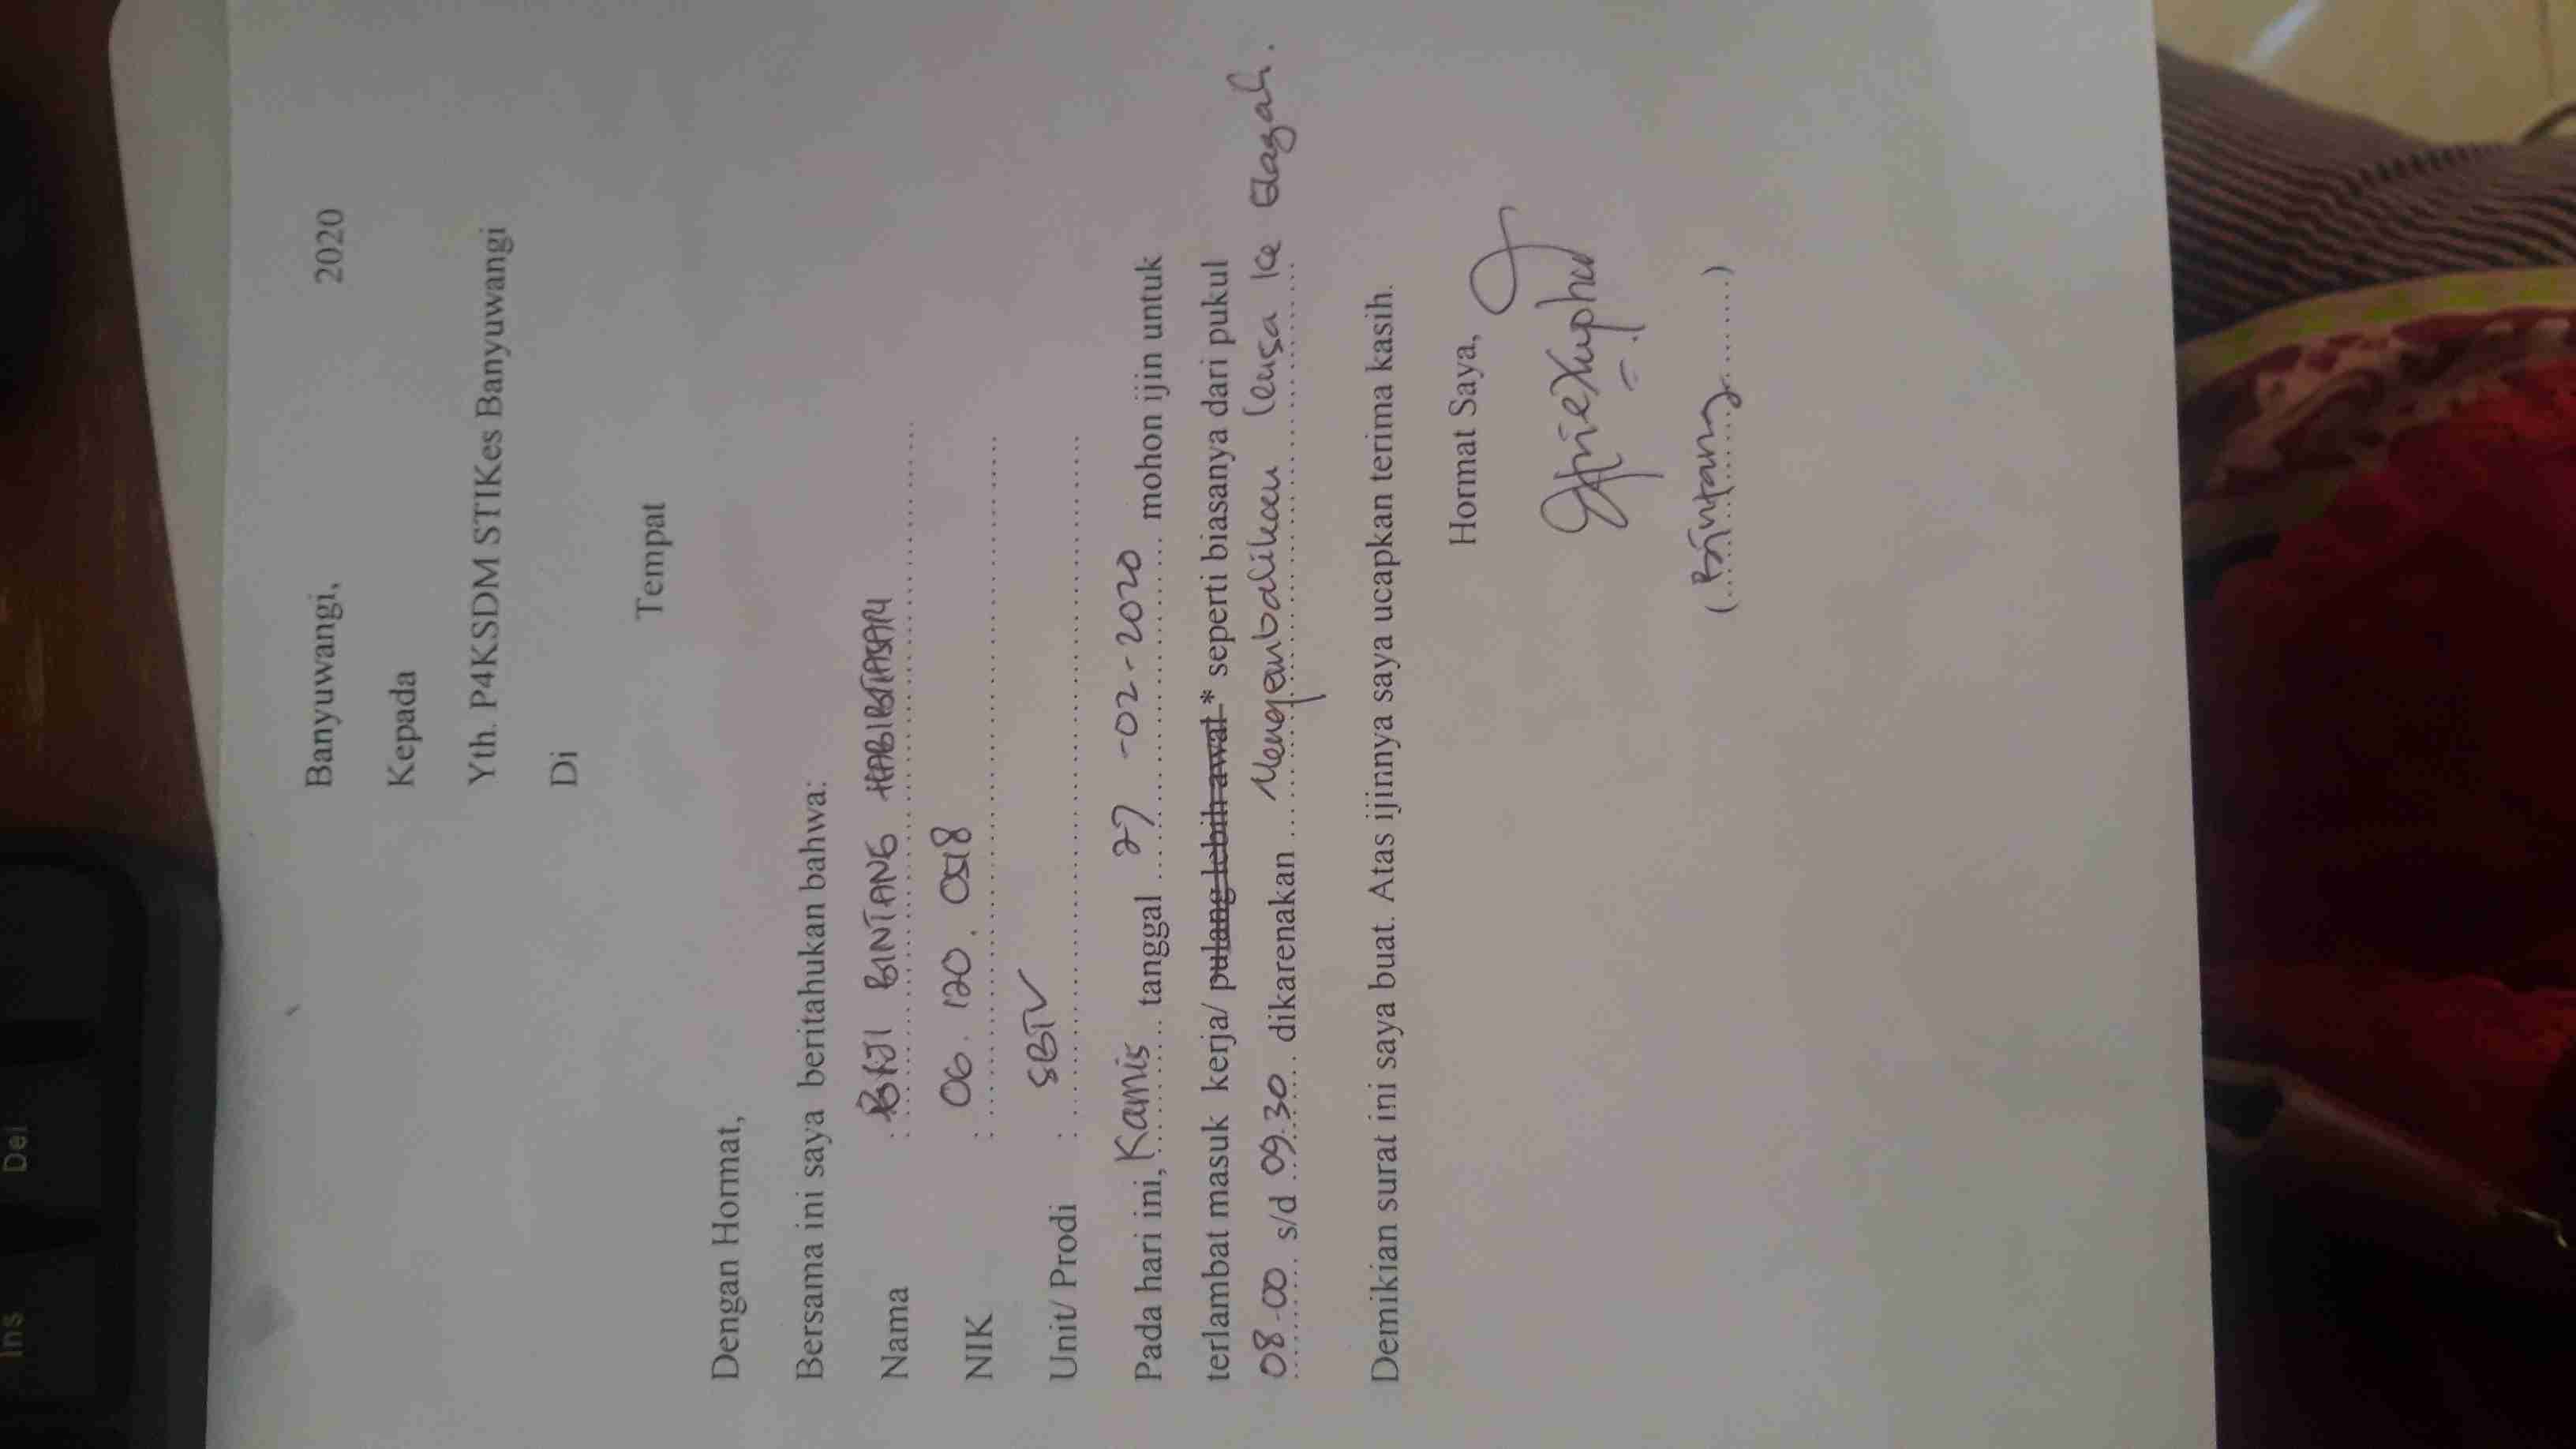 Ins Del
Banyuwangi, 2020
Kepada
Yth. P4KSDM STIKes Banyuwangi
Di
Tempat
Dengan Hormat,
Bersama ini saya beritahukan bahwa:
Nama : BINTANG
NIK : 06. 120. 0518
Unit/ Prodi : SBTV
Pada hari ini, Kamis tanggal 27 -02-2020 mohon ijin untuk
terlambat masuk kerja/ pulang lebih awal * seperti biasanya dari pukul
08.00 s/d 09.30 dikarenakan Mengembalikan lensa ke
Demikian surat ini saya buat. Atas ijinnya saya ucapkan terima kasih.
Hormat Saya,
(Bintang)